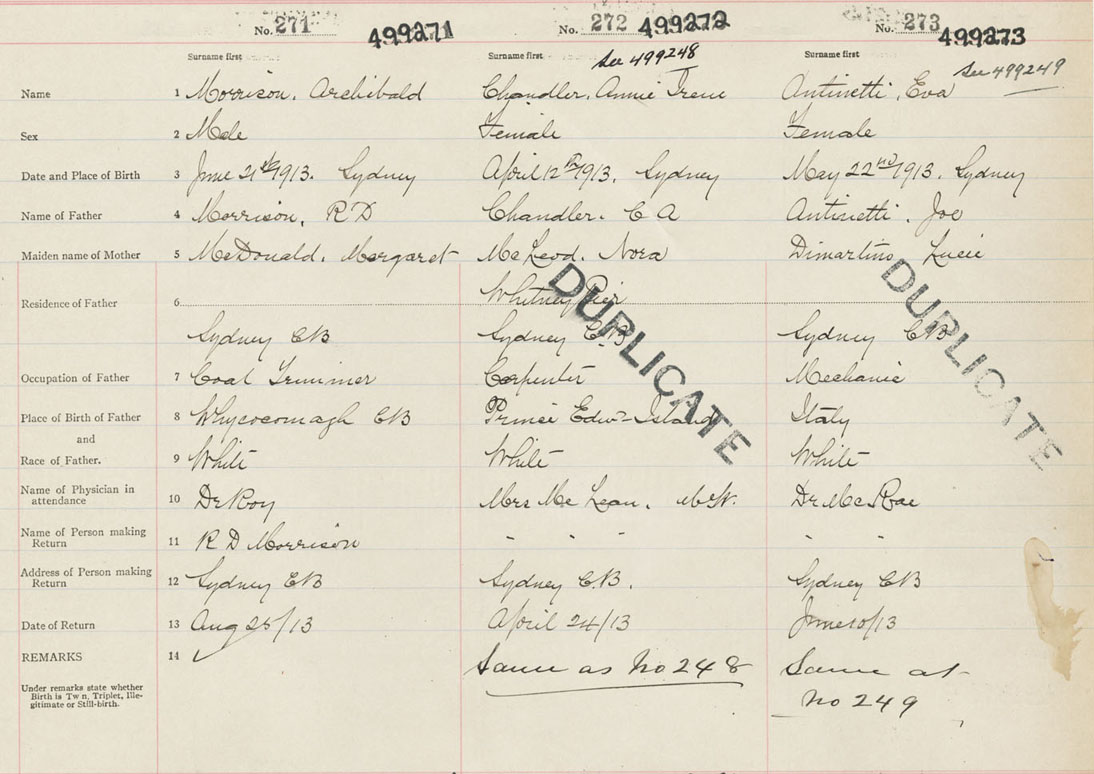 No. 271 499271 No. 272 499272 No. 273 499273
Surname first Surname first See 499248 Surname first See 499249
Name 1 Morrison, Archibald Chandler, Annie Irene Antinetti, Eva
Sex 2 Male Female Female
Date and Place of Birth 3 June 21st 1913. Sydney April 12th 1913, Sydney May 22nd 1913, Sydney
Name of Father 4 Morrison, R D Chandler. C A Antinetti, Joe
Maiden name of Mother 5 McDonald, Margaret McLeod, Nora Dimartino Lucie
Residence of Father 6 Whitney Pier
Sydney CB Sydney C.B Sydney CB
DUPLICATE DUPLICATE
Occupation of Father 7 Coal Trimmer Carpenter Mechanic
Place of Birth of Father 8 Whycocomagh CB Prince Edw-Island Italy
and
Race of Father. 9 White White White
Name of Physician in
attendance 10 Dr Roy Mrs McLean, Dr McRae
Name of Person making
Return 11 R D Morrison " " " " "
Address of Person making
Return 12 Sydney CB Sydney C.B. Sydney CB
Date of Return 13 Aug 25/13 April 24/13 June 10/13
REMARKS 14 Same as No 248 Same as
No 249
Under remarks state whether
Birth is Twin, Triplet, Ille-
gitimate or Still-birth.